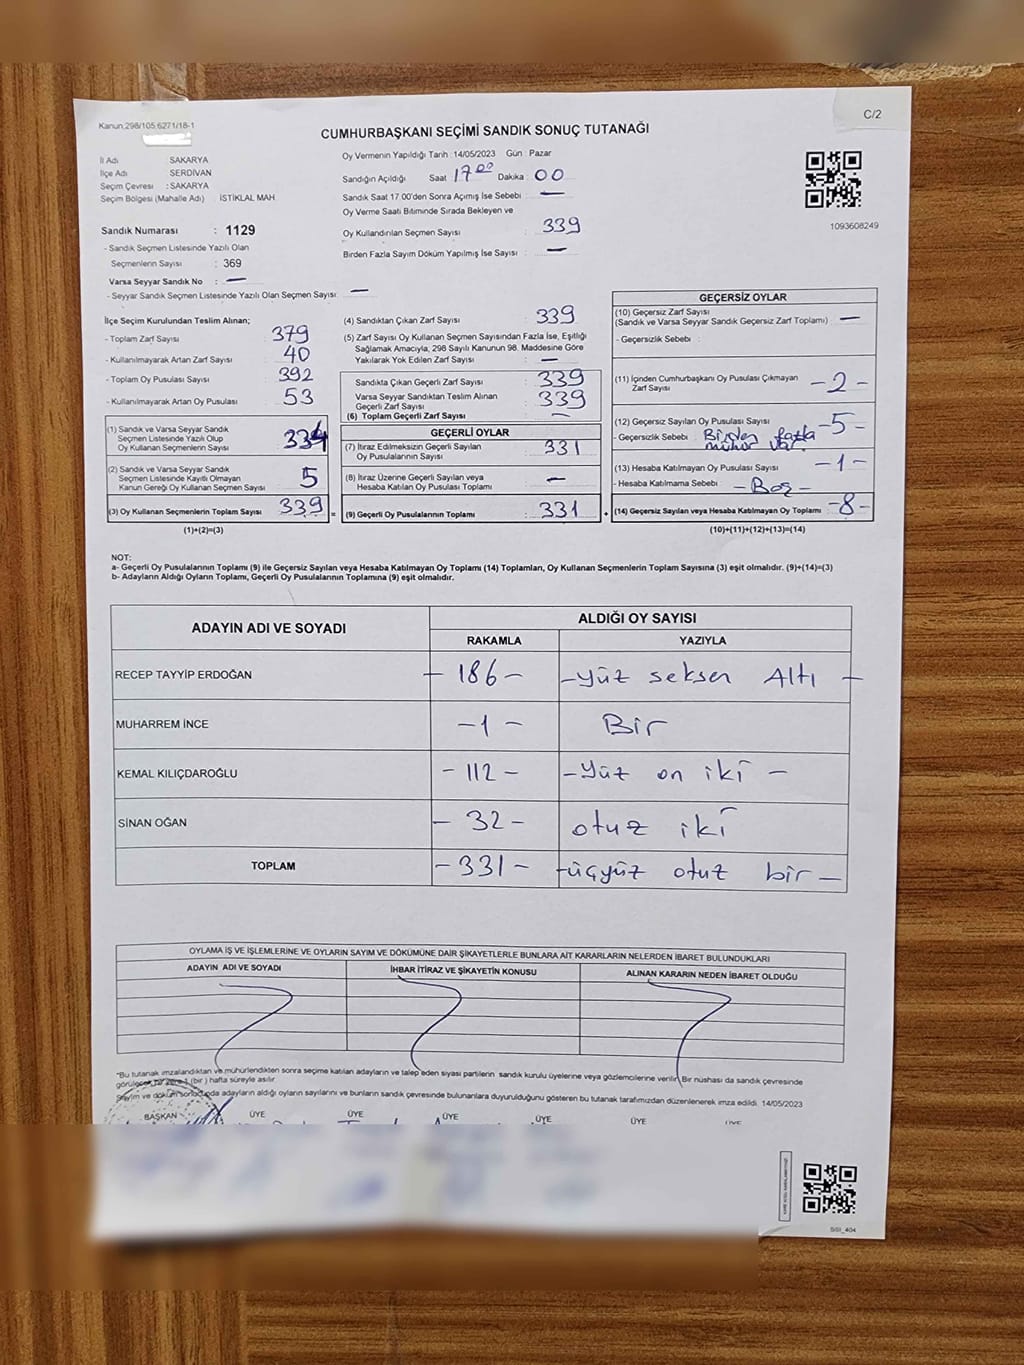 Kanun:298/105.6271/18-1
C/2
CUMHURBAŞKANI SEÇİMİ SANDIK SONUÇ TUTANAĞI
İl Adı SAKARYA
İlçe Adı SERDİVAN
Seçim Çevresi : SAKARYA
Seçim Bölgesi (Mahalle Adı) İSTİKLAL MAH.
Sandık Numarası : 1129
- Sandık Seçmen Listesinde Yazılı Olan
Seçmenlerin Sayısı : 369
Varsa Seyyar Sandık No : —
- Seyyar Sandık Seçmen Listesinde Yazılı Olan Seçmen Sayısı: —
Oy Vermenin Yapıldığı Tarih :14/05/2023 Gün : Pazar
Sandığın Açıldığı Saat 17 00 Dakika : 00
Sandık Saat 17.00'den Sonra Açımış İse Sebebi : —
Oy Verme Saati Bitiminde Sırada Bekleyen ve
Oy Kullandırılan Seçmen Sayısı : 339
Birden Fazla Sayım Döküm Yapılmış İse Sayısı : —
1093608249
İlçe Seçim Kurulundan Teslim Alınan;
- Toplam Zarf Sayısı : 379
- Kullanılmayarak Artan Zarf Sayısı : 40
- Toplam Oy Pusulası Sayısı : 392
- Kullanılmayarak Artan Oy Pusulası : 53
(1) Sandık ve Varsa Seyyar Sandık
Seçmen Listesinde Yazılı Olup
Oy Kullanan Seçmenlerin Sayısı : 334
(2) Sandık ve Varsa Seyyar Sandık
Seçmen Listesinde Kayıtlı Olmayan
Kanun Gereği Oy Kullanan Seçmen Sayısı : 5
(3) Oy Kullanan Seçmenlerin Toplam Sayısı : 339
(1)+(2)=(3)
(4) Sandıktan Çıkan Zarf Sayısı : 339
(5) Zarf Sayısı Oy Kullanan Seçmen Sayısından Fazla İse, Eşitliği
Sağlamak Amacıyla, 298 Sayılı Kanunun 98. Maddesine Göre
Yakılarak Yok Edilen Zarf Sayısı : —
Sandıkta Çıkan Geçerli Zarf Sayısı : 339
Varsa Seyyar Sandıktan Teslim Alınan
Geçerli Zarf Sayısı : 339
(6) Toplam Geçerli Zarf Sayısı : —
GEÇERLİ OYLAR
(7) İtiraz Edilmeksizin Geçerli Sayılan
Oy Pusulalarının Sayısı : 331
(8) İtiraz Üzerine Geçerli Sayılan veya
Hesaba Katılan Oy Pusulası Toplamı : —
= (9) Geçerli Oy Pusulalarının Toplamı : 331
GEÇERSİZ OYLAR
(10) Geçersiz Zarf Sayısı
(Sandık ve Varsa Seyyar Sandık Geçersiz Zarf Toplamı) : —
- Geçersizlik Sebebi :
(11) İçinden Cumhurbaşkanı Oy Pusulası Çıkmayan
Zarf Sayısı : -2-
(12) Geçersiz Sayılan Oy Pusulası Sayısı : -5-
- Geçersizlik Sebebi : Birden fazla
mühür var.
(13) Hesaba Katılmayan Oy Pusulası Sayısı : -1-
- Hesaba Katılmama Sebebi : -Boş-
+ (14) Geçersiz Sayılan veya Hesaba Katılmayan Oy Toplamı : -8-
(10)+(11)+(12)+(13)=(14)
NOT:
a- Geçerli Oy Pusulalarının Toplamı (9) ile Geçersiz Sayılan veya Hesaba Katılmayan Oy Toplamı (14) Toplamları, Oy Kullanan Seçmenlerin Toplam Sayısına (3) eşit olmalıdır. (9)+(14)=(3)
b- Adayların Aldığı Oyların Toplamı, Geçerli Oy Pusulalarının Toplamına (9) eşit olmalıdır.
ADAYIN ADI VE SOYADI ALDIĞI OY SAYISI
RAKAMLA YAZIYLA
RECEP TAYYİP ERDOĞAN - 186 - - yüz seksen Altı -
MUHARREM İNCE -1- Bir
KEMAL KILIÇDAROĞLU - 112 - - Yüz on iki -
SİNAN OĞAN - 32 - otuz iki
TOPLAM - 331 - - üçyüz otuz bir -
OYLAMA İŞ VE İŞLEMLERİNE VE OYLARIN SAYIM VE DÖKÜMÜNE DAİR ŞİKAYETLERLE BUNLARA AİT KARARLARIN NELERDEN İBARET BULUNDUKLARI
ADAYIN ADI VE SOYADI İHBAR İTİRAZ VE ŞİKAYETİN KONUSU ALINAN KARARIN NEDEN İBARET OLDUĞU
"Bu tutanak imzalandıktan ve mühürlendikten sonra seçime katılan adayların ve talep eden siyasi partilerin sandık kurulu üyelerine veya gözlemcilerine verilir. Bir nüshası da sandık çevresinde
görülecek bir yere 1 (bir ) hafta süreyle asılır.
Sayım ve döküm sonunda adayların aldığı oyların sayılarını ve bunların sandık çevresinde bulunanlara duyurulduğunu gösteren bu tutanak tarafımızdan düzenlenerek imza edildi. 14/05/2023
BAŞKAN ÜYE ÜYE ÜYE ÜYE ÜYE ÜYE
SSİ_404